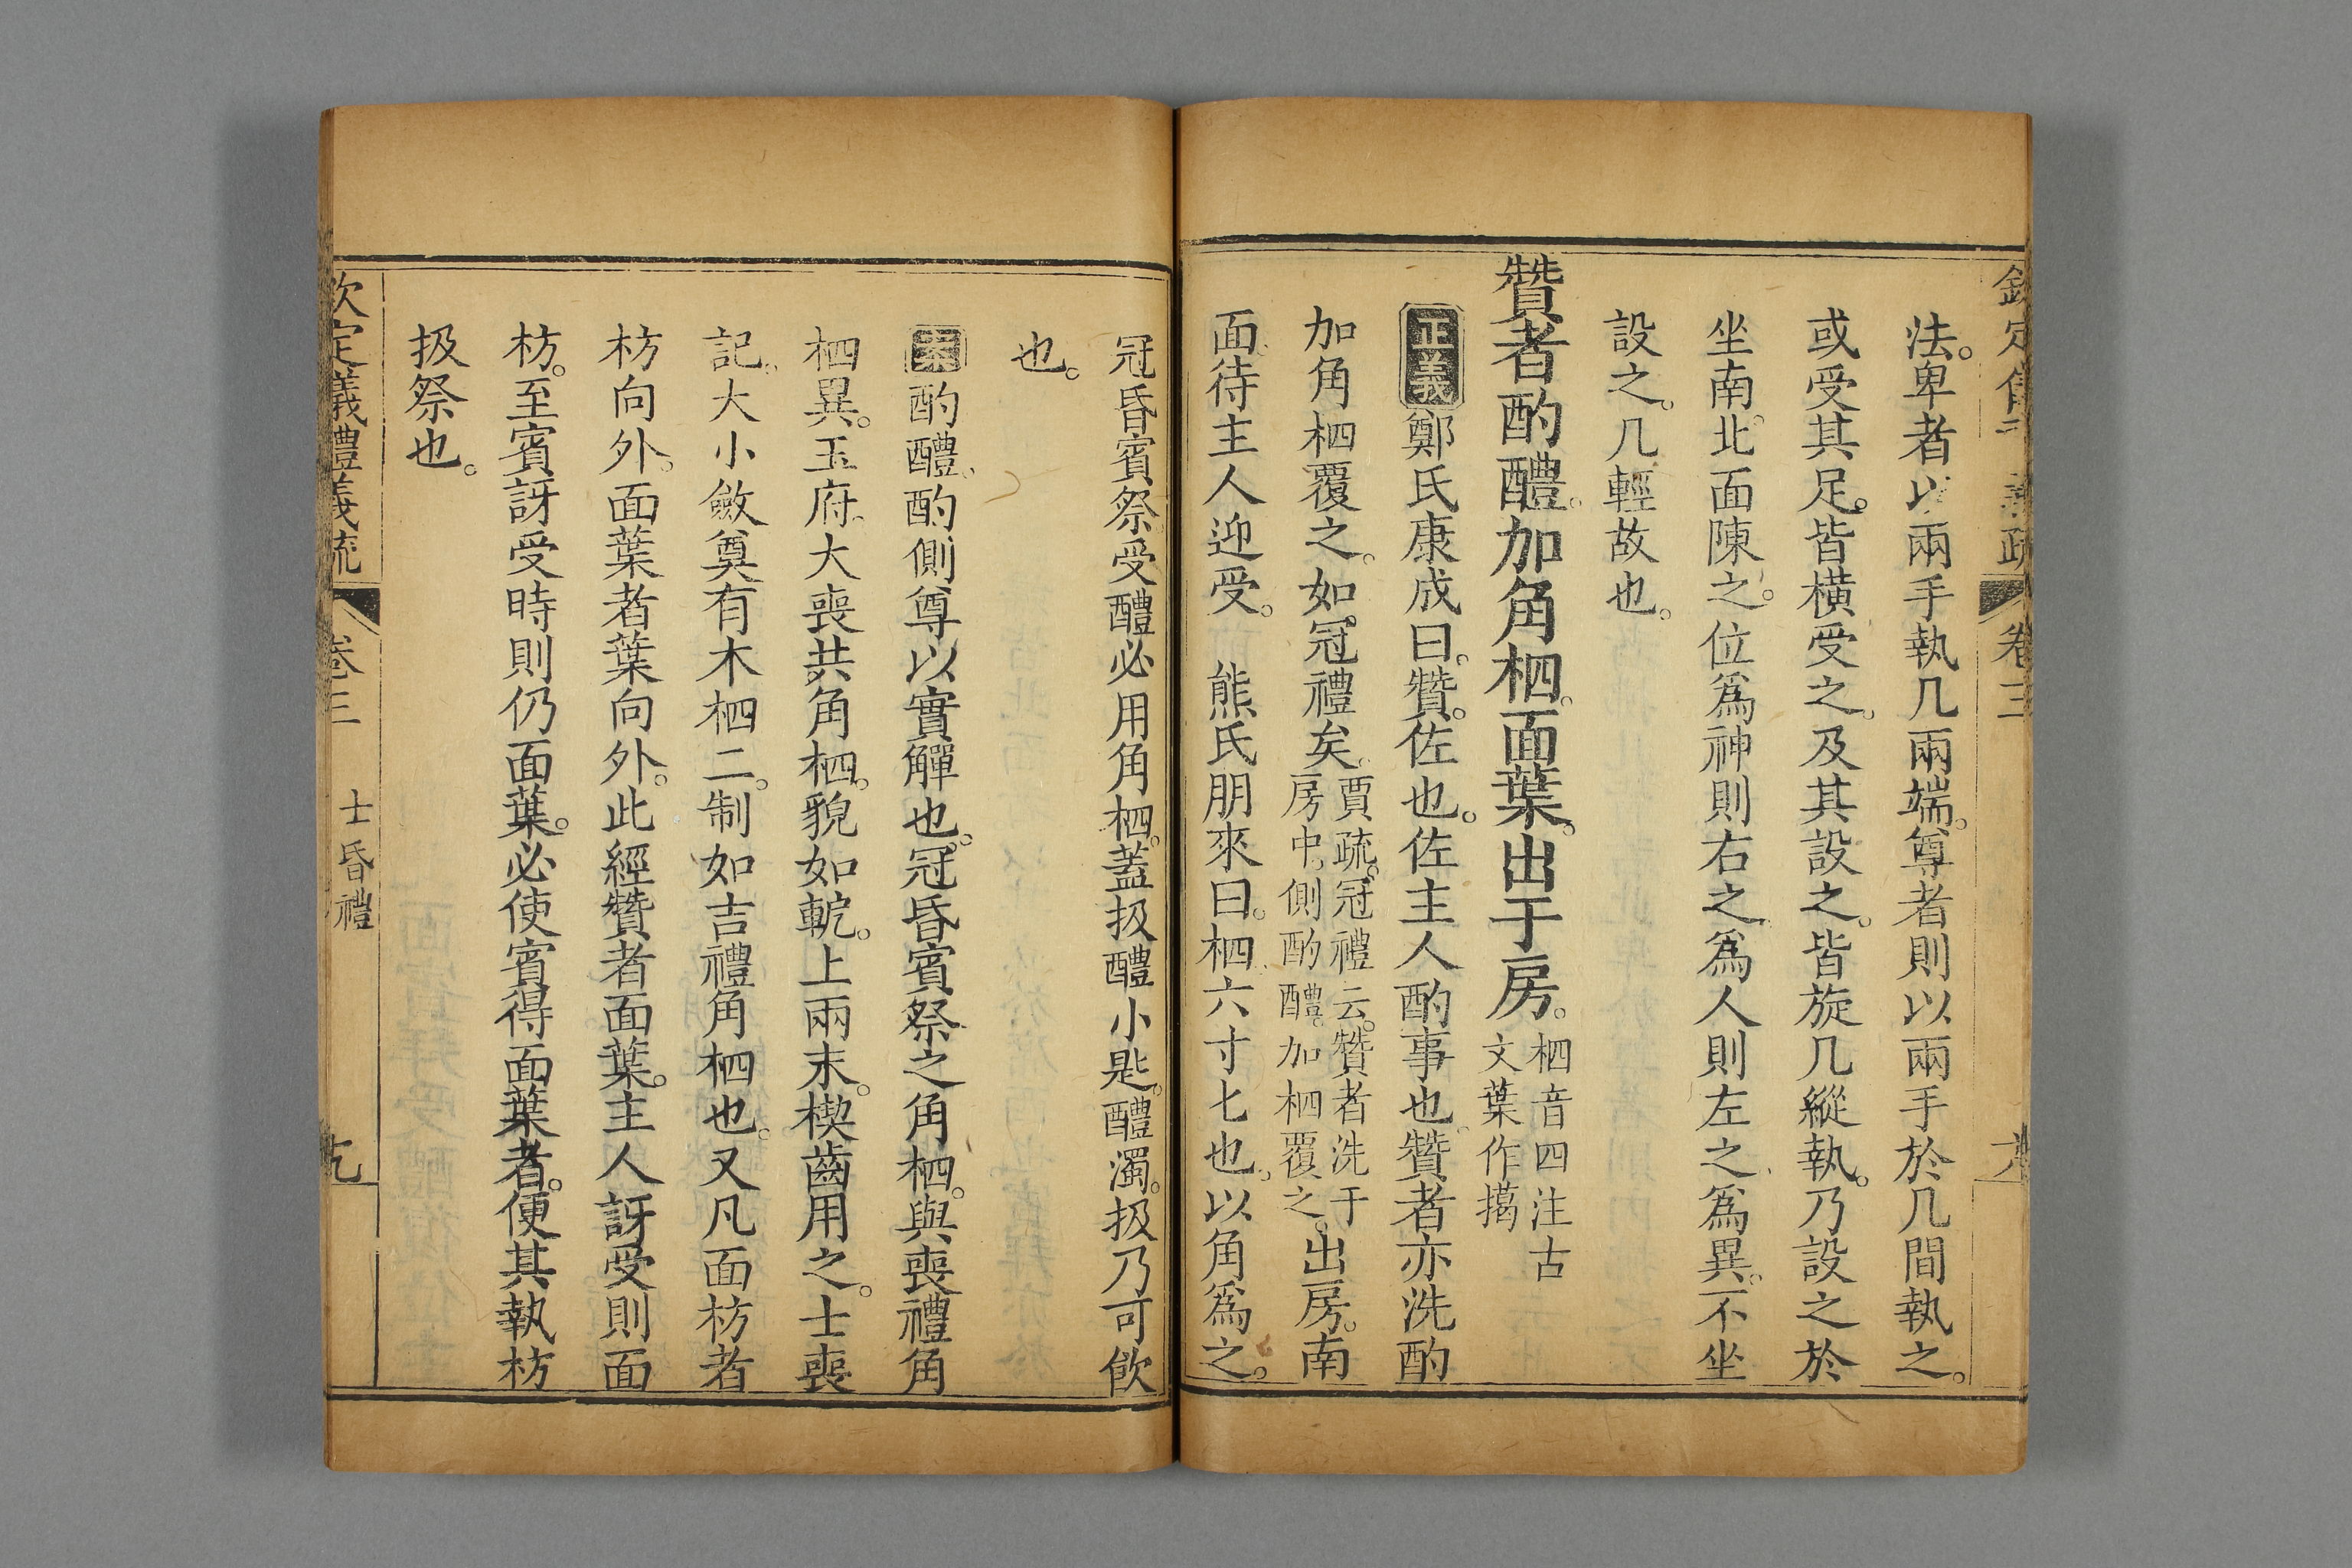 欽定儀禮義疏 卷三
法。卑者以兩手執几兩端。尊者則以兩手於几間執之。
或受其足。皆橫受之。及其設之。皆旋几縱執。乃設之於
坐南。北面陳之。位爲神則右之、爲人則左之、爲異。不坐
設之。几輕故也。
贊者酌醴。加角柶。面葉。出于房。柶音四注古
文葉作擖
正義鄭氏康成曰。贊。佐也。佐主人酌事也。贊者亦洗酌
加角柶覆之。如冠禮矣。賈疏。冠禮云。贊者洗于
房中。側酌醴。加柶覆之。出房。南
面、待主人迎受。 熊氏朋來曰。柶、六寸七也。以角爲之。
冠昏賓祭受醴必用角柶。蓋扱醴小匙。醴濁。扱乃可飲
也。
案酌醴、酌側尊以實觶也。冠昏賓祭之角柶。與喪禮角
柶異。玉府。大喪共角柶。貌如軛。上兩末。楔齒用之。士喪
記。大小斂奠有木柶二。制如吉禮角柶也。又凡面枋者
枋向外。面葉者葉向外。此經贊者面葉。主人訝受則面
枋。至賓訝受時則仍面葉。必使賓得面葉者。便其執枋
扱祭也。
欽定儀禮義疏 卷三 士昏禮